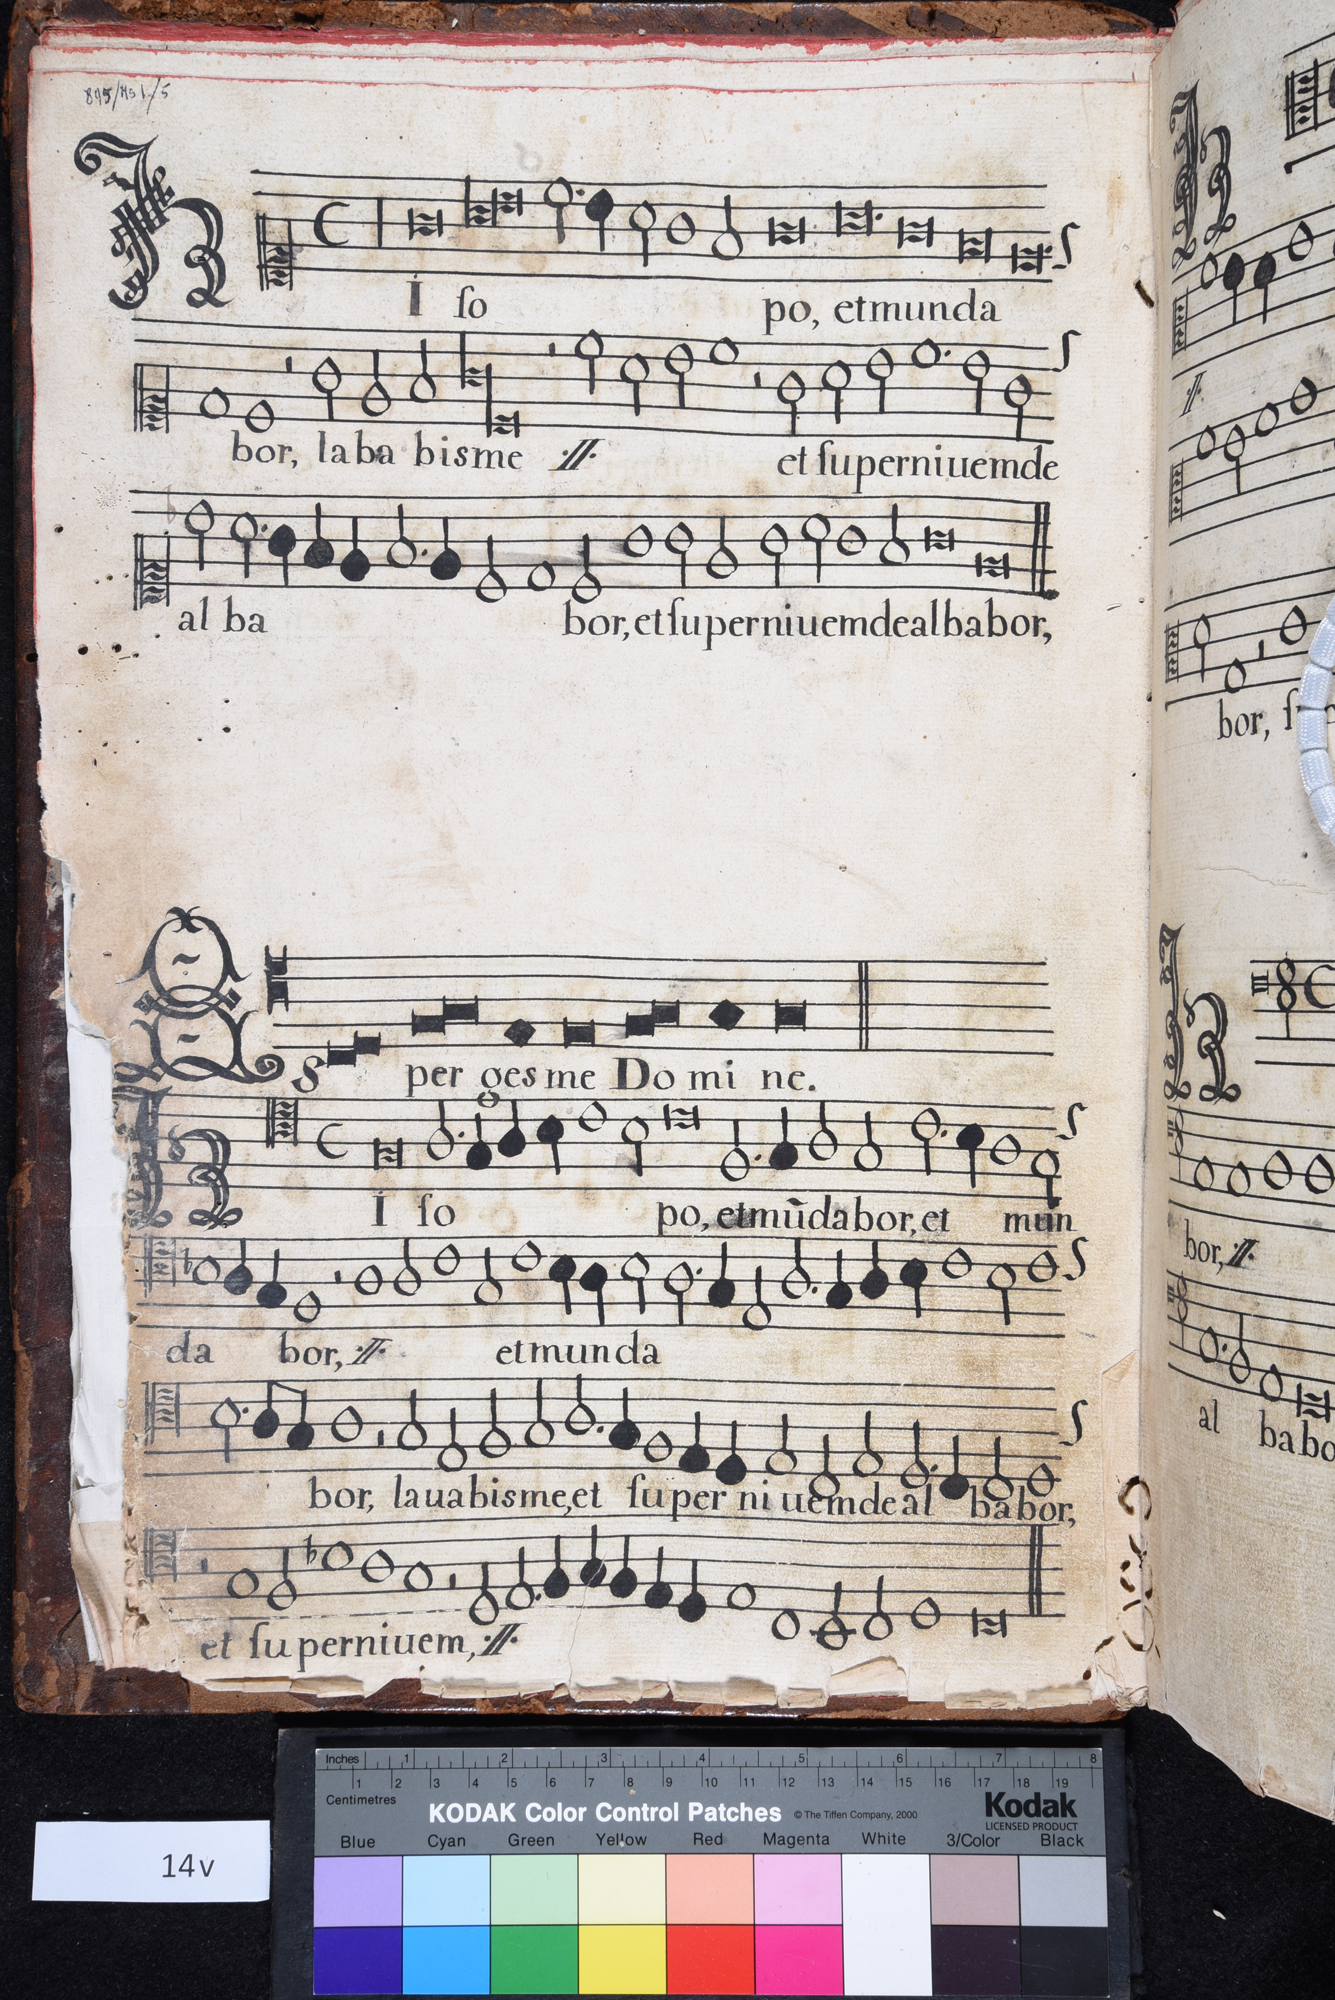 875/Ms 1/5
HI ſo po, et munda
bor, laba bis me :// et ſuper niuem de
al ba bor, et ſuper niuem dealbabor,
AS per ges me Do mi ne.
HI ſo po, et mũdabor, et mun
da bor, :// et munda
bor, laua bis me, et ſu per ni uem de al babor,
et ſu per niuem, ://
bor, ſu
bor, ://
al ba bo
Inches 1 2 3 4 5 6 7 8
Centimetres 1 2 3 4 5 6 7 8 9 10 11 12 13 14 15 16 17 18 19
KODAK Color Control Patches © The Tiffen Company, 2000 Kodak
LICENSED PRODUCT
Blue Cyan Green Yellow Red Magenta White 3/Color Black
14v